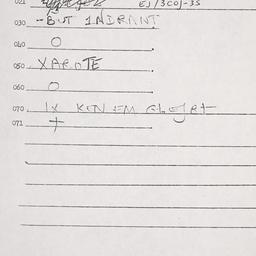 021 EJ/3COJ-35
030 -BUT INDRANT
040 O
050 XAROTE
060 O
070 IX KEN EM
071 +